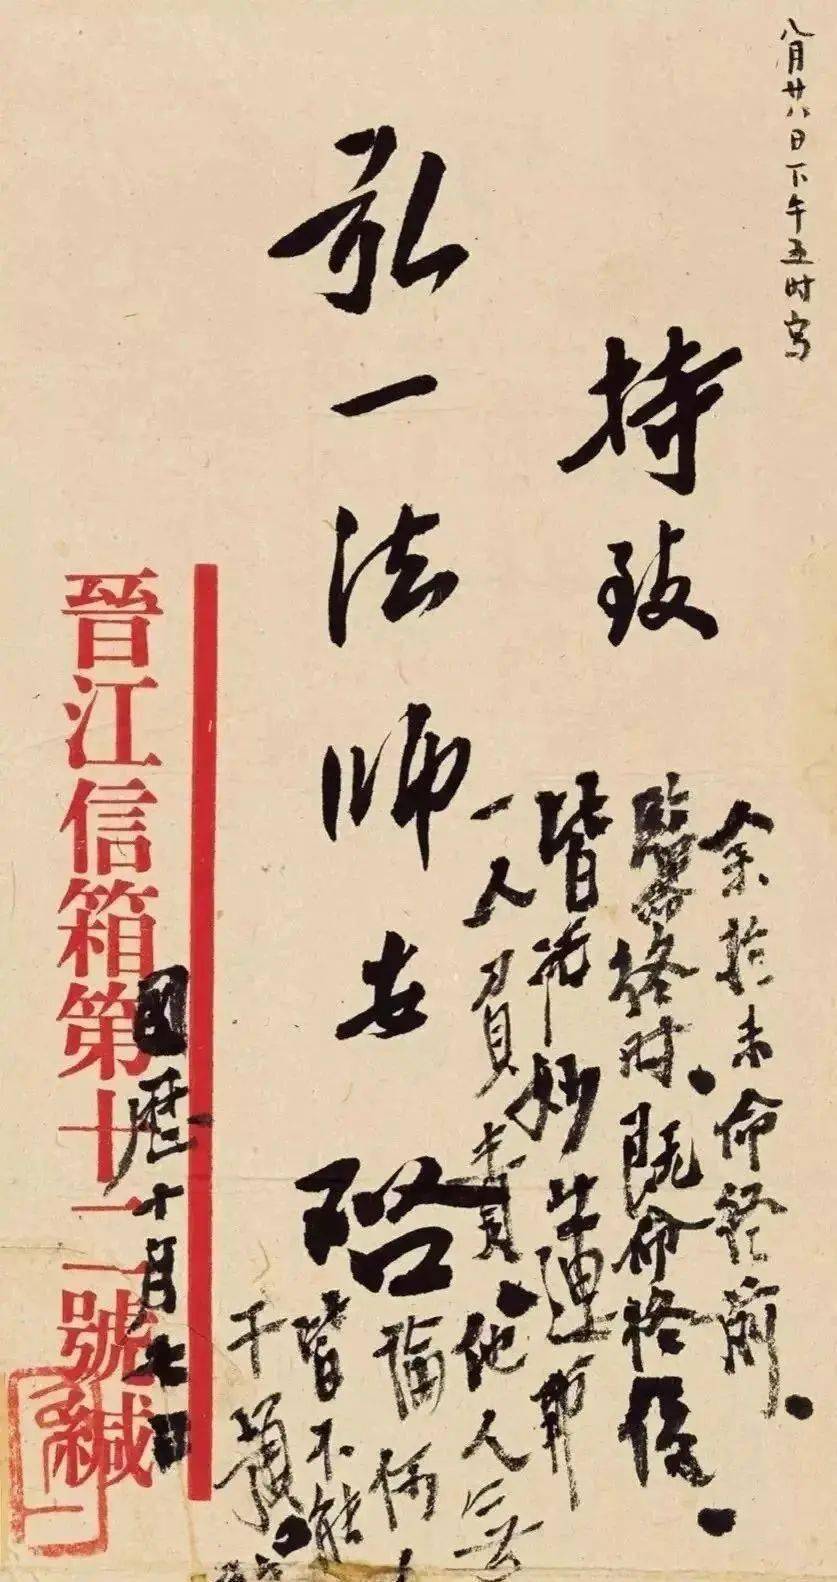 八月廿八日下午五时写
持致
弘一法师安啟
余於未命終前。
臨命終时。既命終後。
皆託妙蓮師
一人負責。他人無
論何人
皆不能
干預。
國曆十月七日
晉江信箱第十二號緘